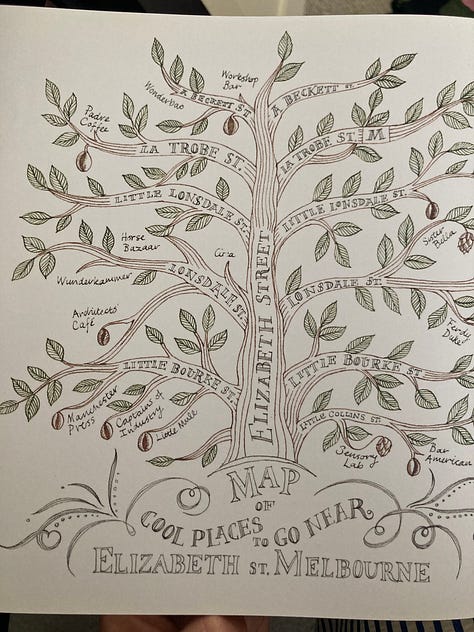 Workshop
Bar
Wonderbao
A BECKETT ST
A BECKETT ST.
Padre
Coffee
LA TROBE ST.
LA TROBE ST. M
LITTLE LONSDALE ST.
LITTLE LONSDALE ST.
Horse
Bazaar
Circa
Sister
Bella
Wunderkammer
LONSDALE ST.
LONSDALE ST.
ELIZABETH STREET
Architects'
Café
Ferdy
Duke
LITTLE BOURKE ST.
LITTLE BOURKE ST.
Manchester
Press
Captains of
Industry
Little Mule
LITTLE COLLINS ST.
Sensory
Lab
Bar
American
MAP
OF
COOL PLACES TO GO NEAR
ELIZABETH ST. MELBOURNE